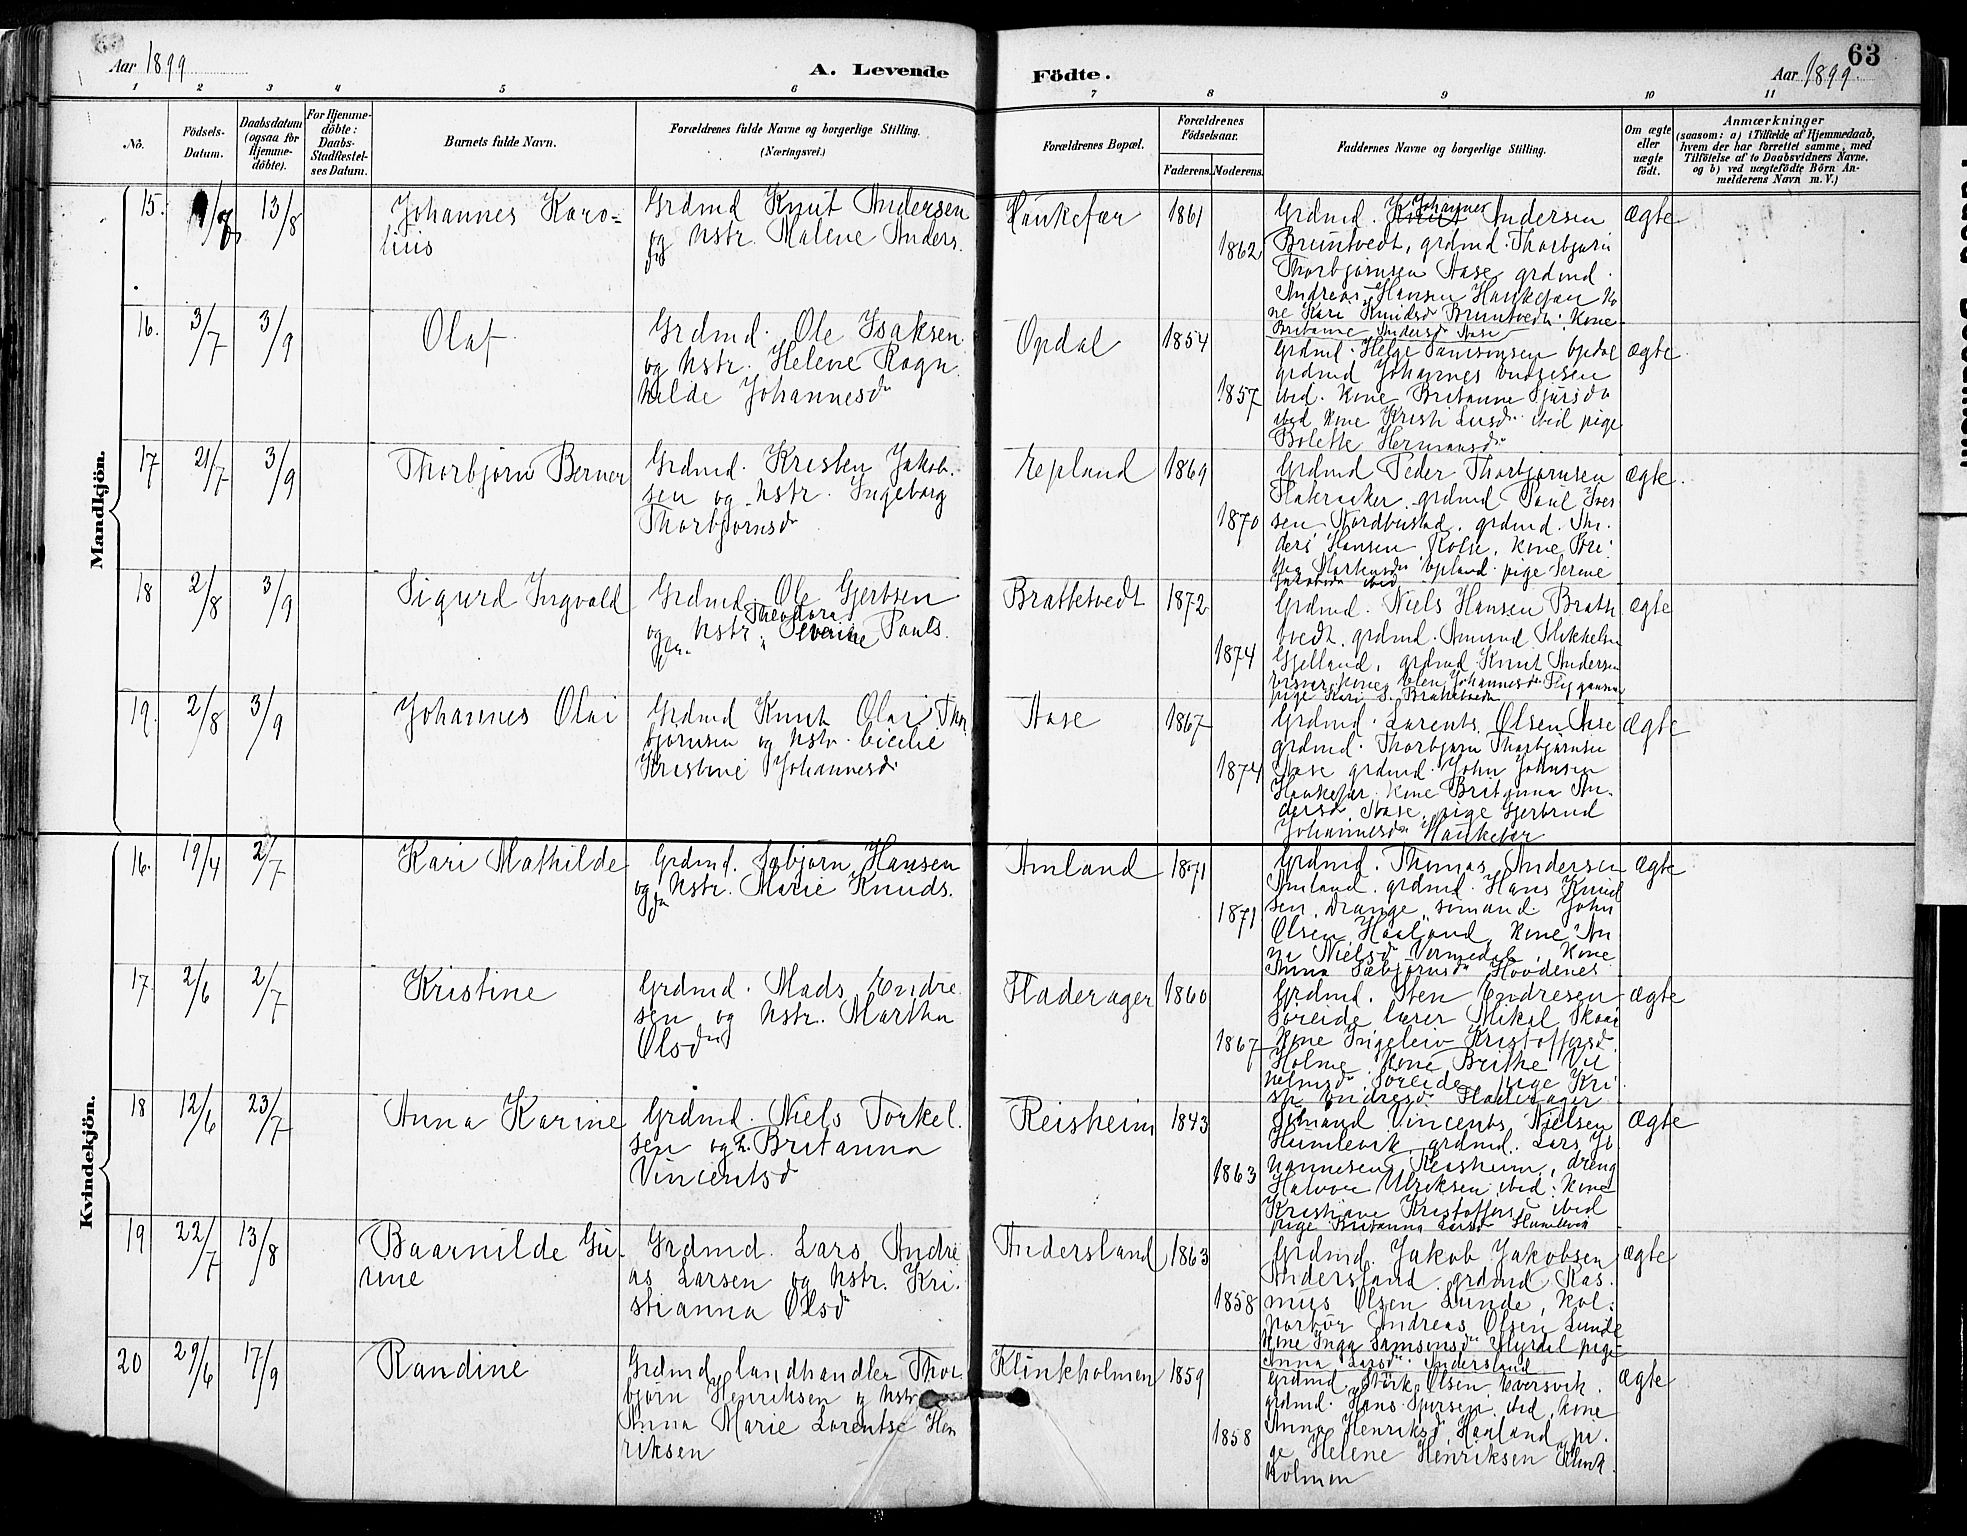 Aar 1899
A. Levende
Födte.
63
Aar 1899
1 2 3 4 5 6 7 8 9 10 11
No.
Födsels-
Datum.
Daabsdatum
(ogsaa for
Hjemme-
döbte).
For Hjemme-
döbte:
Daabs-
Stadfæstel-
ses Datum.
Barnets fulde Navn.
Forældrenes fulde Navne og borgerlige Stilling.
(Næringsvei.)
Forældrenes Bopæl.
Forældrenes
Födselsaar.
Faderens. Moderens.
Faddernes Navne og borgerlige Stilling.
Om ægte
eller
uægte
født.
Anmærkninger
(saasom: a) i Tilfælde af Hjemmedaab,
hvem der har forrettet samme, med
Tilföielse af to Daabsvidners Navne,
og b) ved uægtefödte Börn An-
melderens Navn m. V.)
Mandkjön.
15. 13/8
Johannes Karo-
lius
Grdmd Knut Andersen
og hstr. Malene Anders.
dr
Haukefær
1861
1862
Grdmd. Johannes Andersen
Bruntvedt, grdmd. Thorbjørn
Thorbjørnsen Aase grdmd.
Andreas Hansen Haukefær Ko
ne Kari Knudsdr Bruntvedt. Kone
Britanne Andersdr Aase
ægte
16. 3/7 3/9
Olaf
Grdmd. Ole Isaksen
og hstr. Helene Ragn
hilde Johannesdr
Opdal
1854
1857
Grdmd. Helge Samsonsen Opdal
grdmd Johannes
ibid. Kone Britanne Sjursdr
ibid Kone Kristi Larsdr ibid pige
Bolette Hermansdr
ægte
17 21/7 3/9
Thorbjørn Berner
Grdmd. Kristen Jakob.
sen og hstr. Ingeborg
Thorbjørnsdr
Epland
1869
1870
Grdmd Peder Thorbjørnsen
Flateraker. grdmd Paul Iver
sen Nordhustad. grdmd.
ders Hansen Rolse, Kone Bri.
Martinsdr Epland pige Serine
Jakobsdr ibid
ægte.
18 2/8 3/9
Sigurd Ingvald
Grdmd. Ole Gjertsen
og hstr. Theodora Severine Pauls.
dr.
Brattetvedt
1872
1874
Grdmd. Niels Hansen Bratte
tvedt, grdmd. Amund Mikkelsen
Gjelland, grdmd Knut Andersen
Kone Elen Johannesdr
pige Kari S. Brattetvedt
ægte
19. 2/8 3/9
Johannes Olai
Grdmd Knut Olai Thor
bjørnsen og hstr. Cicilie
Kristine Johannesdr
Aase
1867
1874
Grdmd. Larents Olsen Aase
grdmd. Thorbjørn Thorbjørnsen
Aase grdmd. John Johnsen
Haukefær. Kone Britanna An.
dersdr Aase. pige Gjertrud
Johannesdr Haukefær
ægte
Kvindekjön.
16. 19/4 2/7
Kari Mathilde
Grdmd. Sæbjørn Hansen
og hstr. Marie Knuds.
dr
Amland
1871
1871
Grdmd. Thomas Andersen
Amland. grdmd. Hans Knud
sen, Drange, sømand. John
Olsen Haaland, Kone An
na Nielsdr Vormedal. Kone
Anna Sæbjørnsdr Hovdenes
ægte
17. 2/6 2/7
Kristine
Grdmd. Mads Endre
sen og hstr. Martha
Olsdr
Fladerager
1860
1867
Grdmd. Sten Endresen
Søreide lærer Mikal
Kone Ingeleiv Kristoffersdr
Holme. Kone Brithe Vil
helmsdr Søreide. pige Kri
sti Endresdr Fladerager
ægte
18 12/6 23/7
Anna Karine
Grdmd. Niels Torkel.
sen og h. Britanna
Vincentsdr
Reisheim
1843
1863
Sømand Vincents Nielsen
Humlevik grdmd. Lars Jo
hannesen Reisheim, dreng
Halvor Ulriksen ibid. Kone
Kristiane Kristoffersdr ibid
pige Britanna Larsdr Humlevik
ægte
19 22/7 13/8
Baarnilde Gu-
rine
Grdmd. Lars Andre
as Larsen og hstr. Kri.
stianna Olsdr
Andersland
1863
1858
Grdmd. Jakob Jakobsen
Andersland. grdmd Ras.
mus Olsen Lunde, Kol.
portør Andreas Olsen Lunde
Kone Inga Samsonsdr Myrdal pige
Anna Larsdr. Andersland
ægte
20 29/6 17/9
Randine
Grdmd, landhandler Thor
bjørn Henriksen og hstr
Anna Marie Larentse Hen
riksen
Klinkholmen
1859
1858
Grdmd Størk Olsen Eversvik.
grdmd. Hans Iversen ibid, kone
Anna Henriksdr Haaland, pi.
ge Helene Henriksen Klink
holmen
ægte